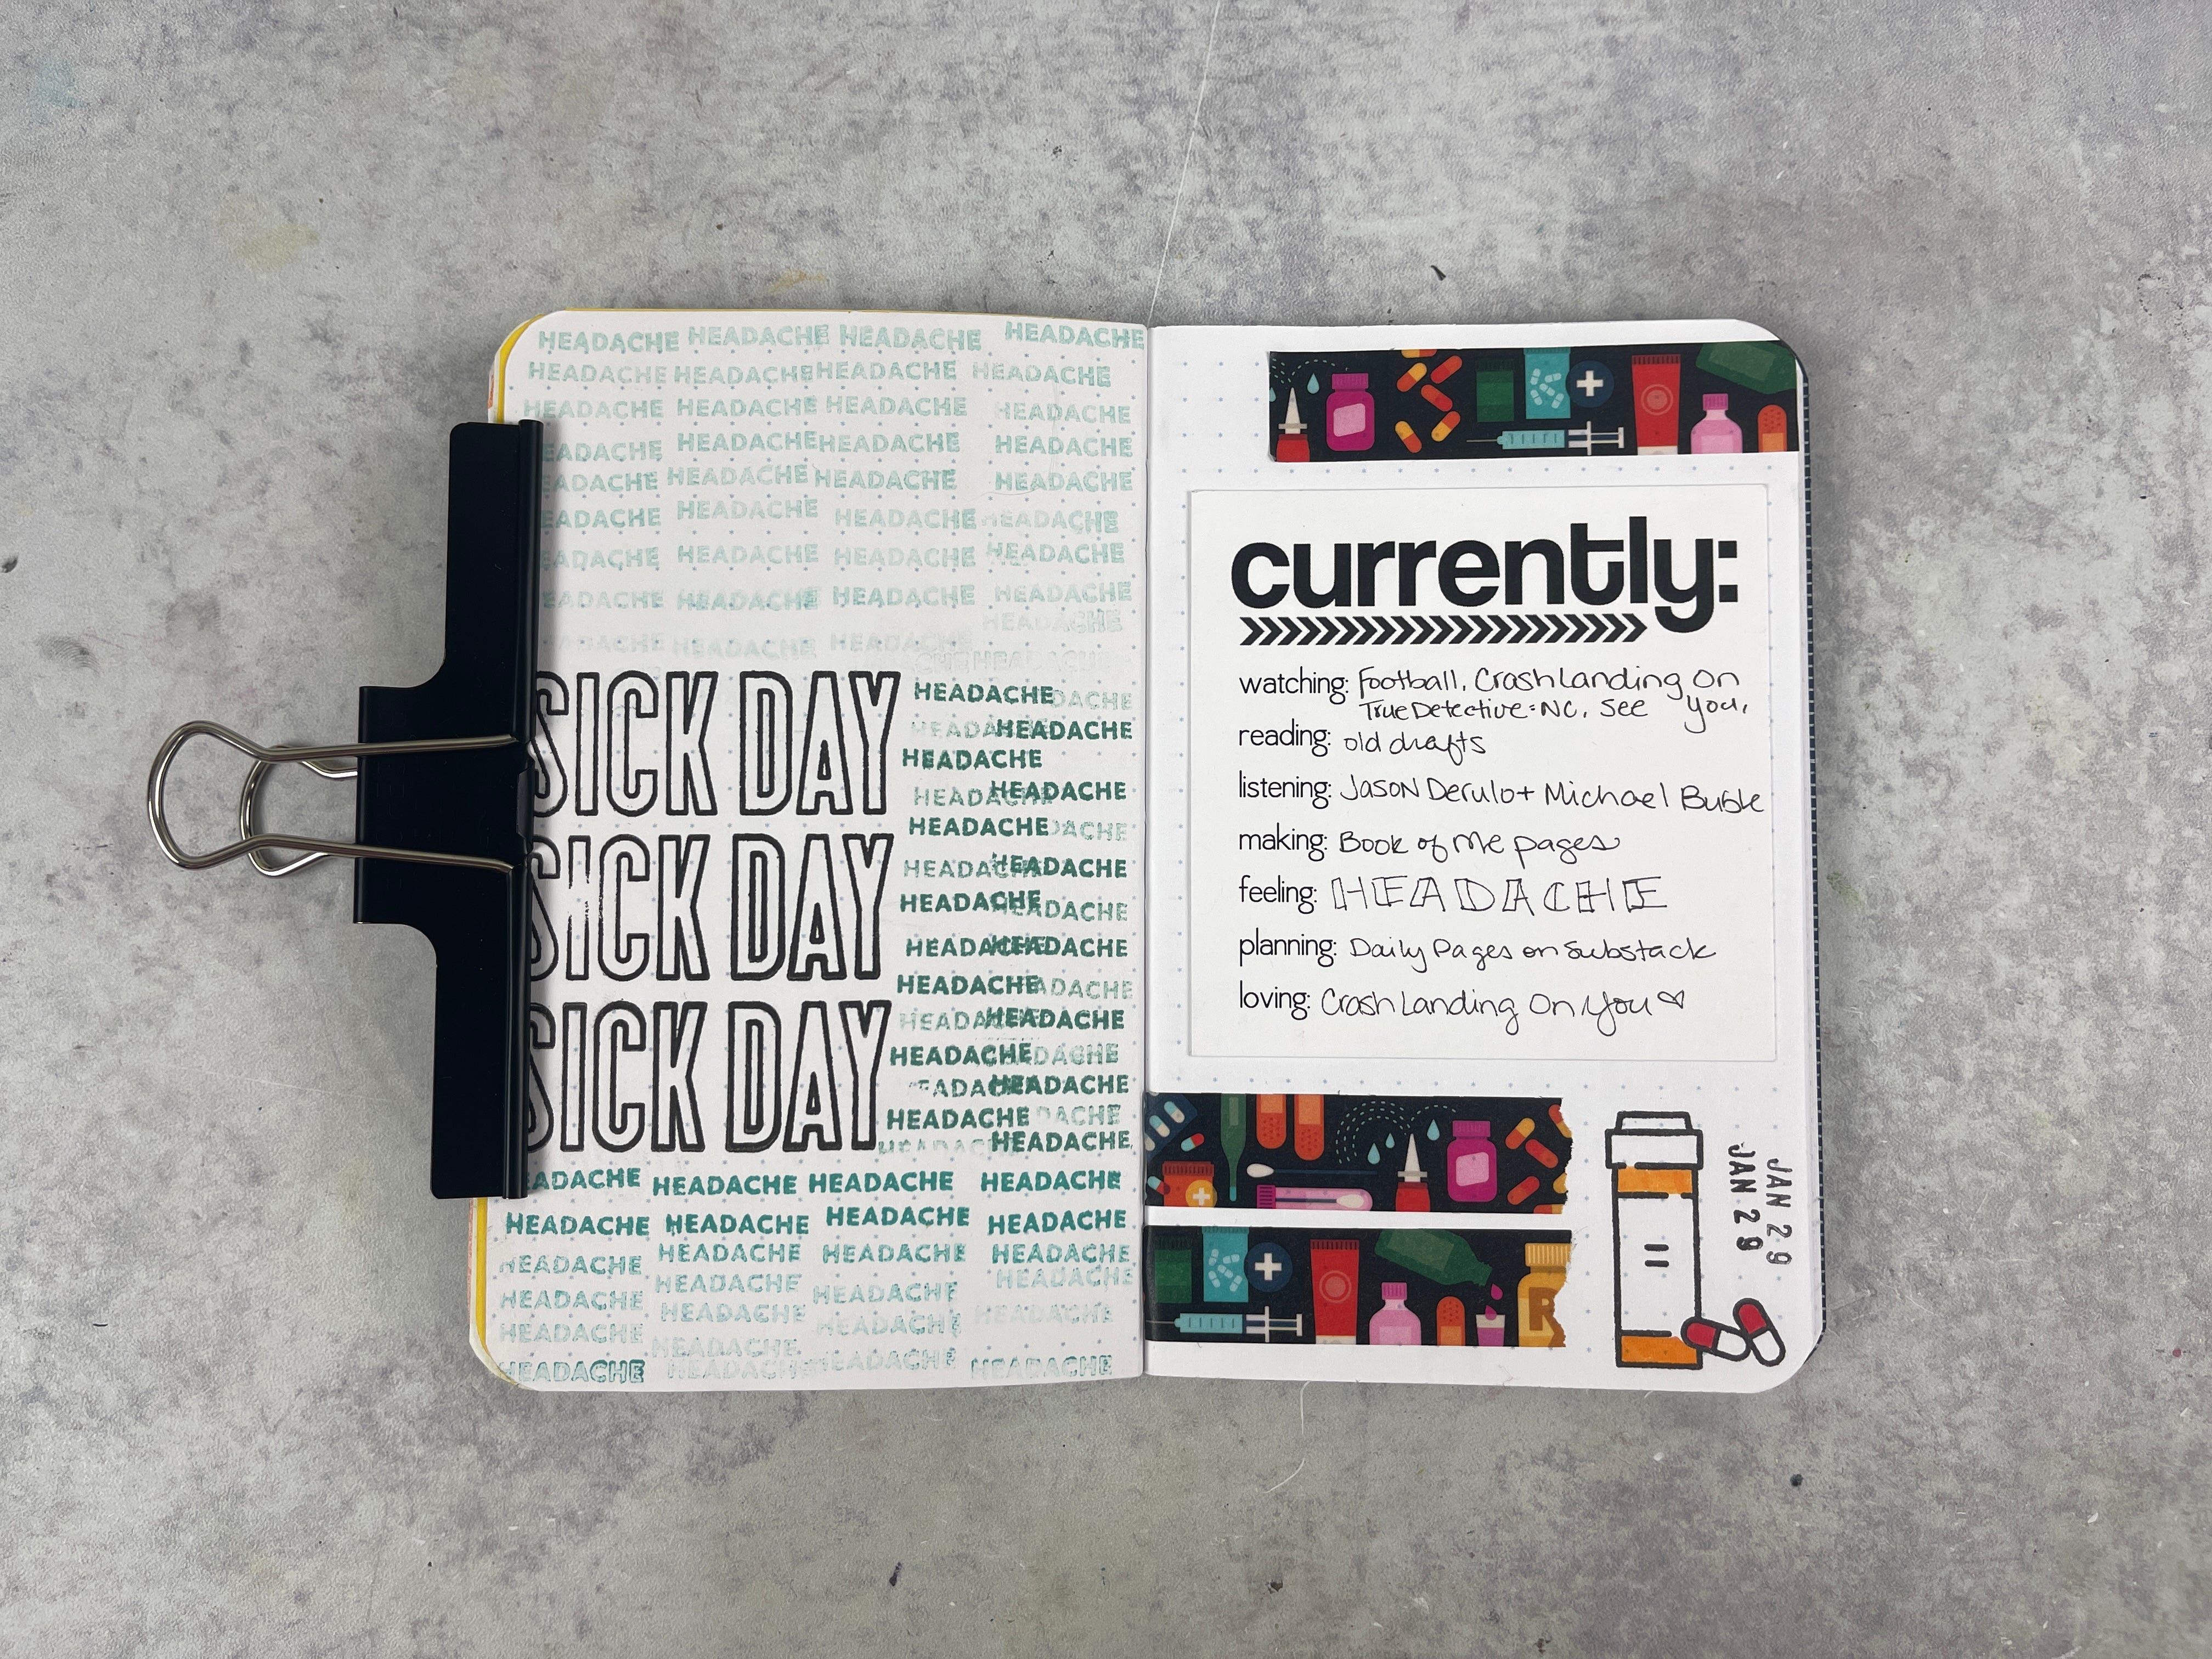 HEADACHE HEADACHE HEADACHE HEADACHE
HEADACHE HEADACHE HEADACHE HEADACHE
HEADACHE HEADACHE HEADACHE HEADACHE
EADACHE HEADACHE HEADACHE HEADACHE
EADACHE HEADACHE HEADACHE HEADACHE
EADACHE HEADACHE HEADACHE HEADACHE
EADACHE HEADACHE HEADACHE HEADACHE
EADACHE HEADACHE HEADACHE HEADACHE
HEADACHE
ADACHE HEADACHE HEADACHE
SICK DAY
SICK DAY
SICK DAY
HEADACHE DACHE
HEADA HEADACHE
HEADACHE
HEADACHE HEADACHE
HEADACHE DACHE
HEADACHE HEADACHE
HEADACHE HEADACHE
HEADACHE HEADACHE
HEADACHE ADACHE
HEADA HEADACHE
HEADACHE DACHE
EADAC HEADACHE
HEADACHE DACHE
HEADACHE HEADACHE
EADACHE HEADACHE HEADACHE HEADACHE
HEADACHE HEADACHE HEADACHE HEADACHE
HEADACHE HEADACHE HEADACHE HEADACHE
HEADACHE HEADACHE HEADACHE HEADACHE
HEADACHE HEADACHE HEADACHE HEADACHE
HEADACHE HEADACHE
HEADACHE HEADACHE HEADACHE HEADACHE
currently:
watching: Football, Crash Landing On You,
True Detective: NC, See
reading: old drafts
listening: Jason Derulo + Michael Buble
making: Book of Me pages
feeling: HEADACHE
planning: Daily Pages on Substack
loving: Crash Landing On You
R
JAN 29
JAN 29